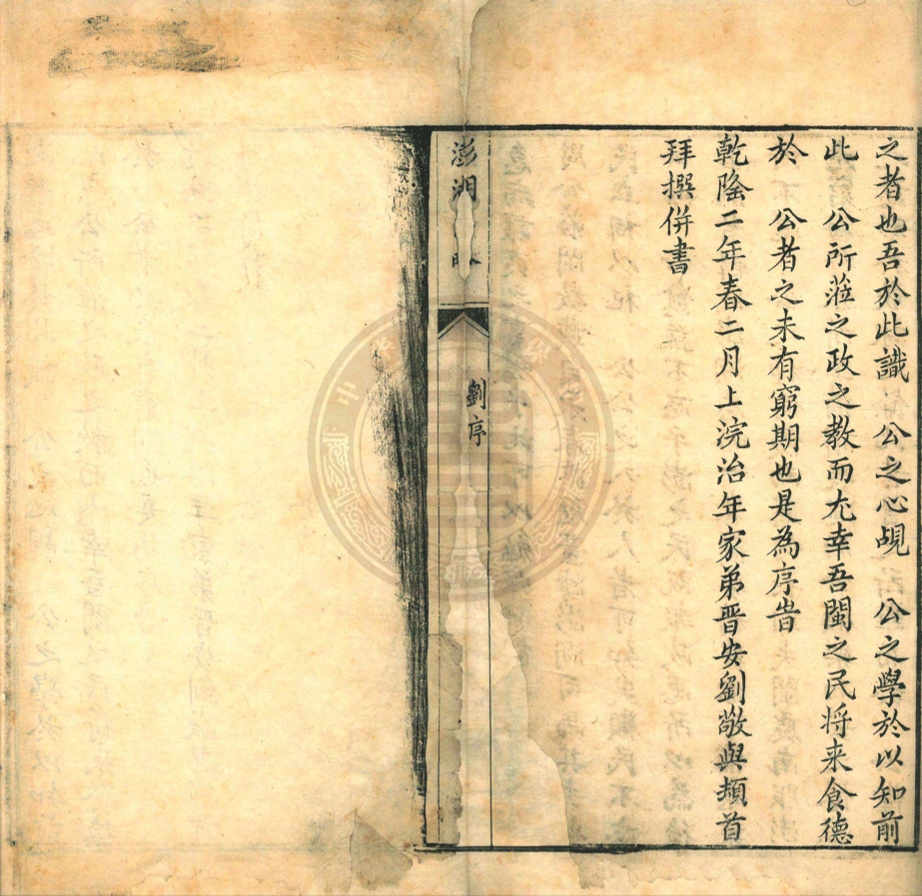 之者也吾於此識　公之心覘　公之學於以知前
此　公所蒞之政之教而尢幸吾閩之民将来食德
於　公者之未有窮期也是為序旹
乾隆二年春二月上浣治年家弟晋安劉敬與頓首
拜撰併書
澎湖
劉序